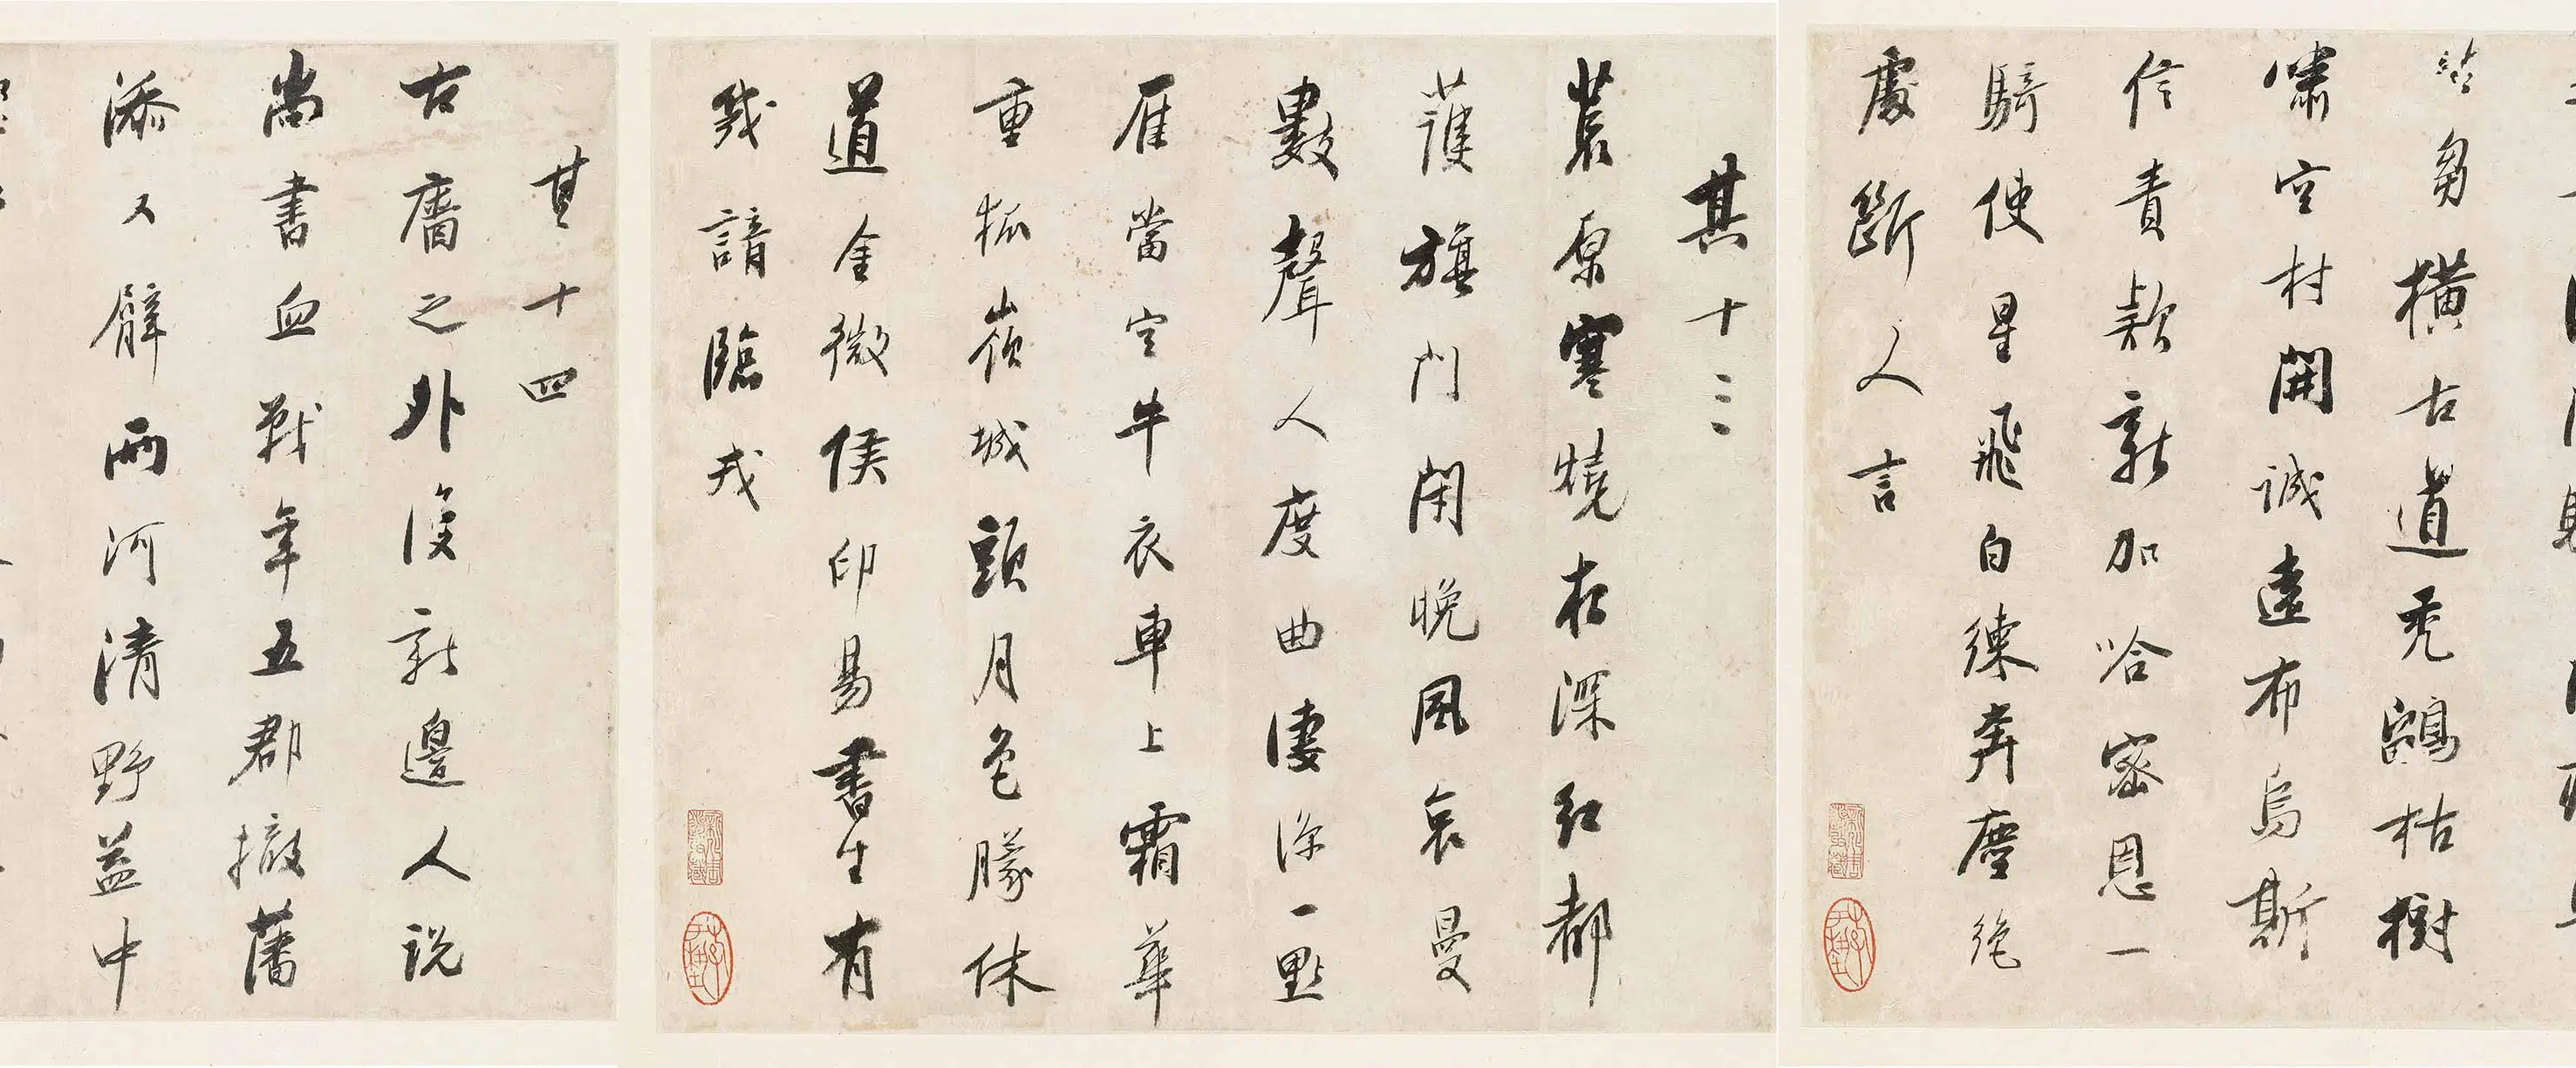 橫古道秃枯樹
嘯空村開誠遠布烏斯
信責款新加哈密恩一
騎使星飛白練奔塵絕
處斷人言
其十三
原寒燒深紅都
護旗門閉晚風哀曼
數聲人度曲淒涼一點
雁當空牛衣車上霜華
重狐嶺城頭月色朦休
道金微侯印易書生有
幾諳臨戎
其十四
古牆之外復新邊人說
尚書血戰年五郡撤藩
添又臂兩河清野益中